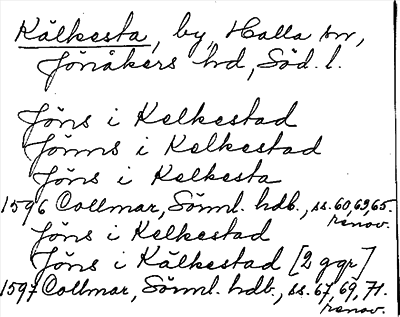 Kälkesta, by, Halla sn,
Jönåkers hd, Söd. l.
Jöns i Kelkestad
Jönns i Kelkestad
Jöns i Kelkesta
1596 Collmar, Sörml. hdb., ss. 60, 63, 65.
renov.
Jöns i Kelkestad
Jöns i Kälkestad [2 ggr]
1597 Collmar, Sörml. hdb., ss. 67, 69, 71.
renov.